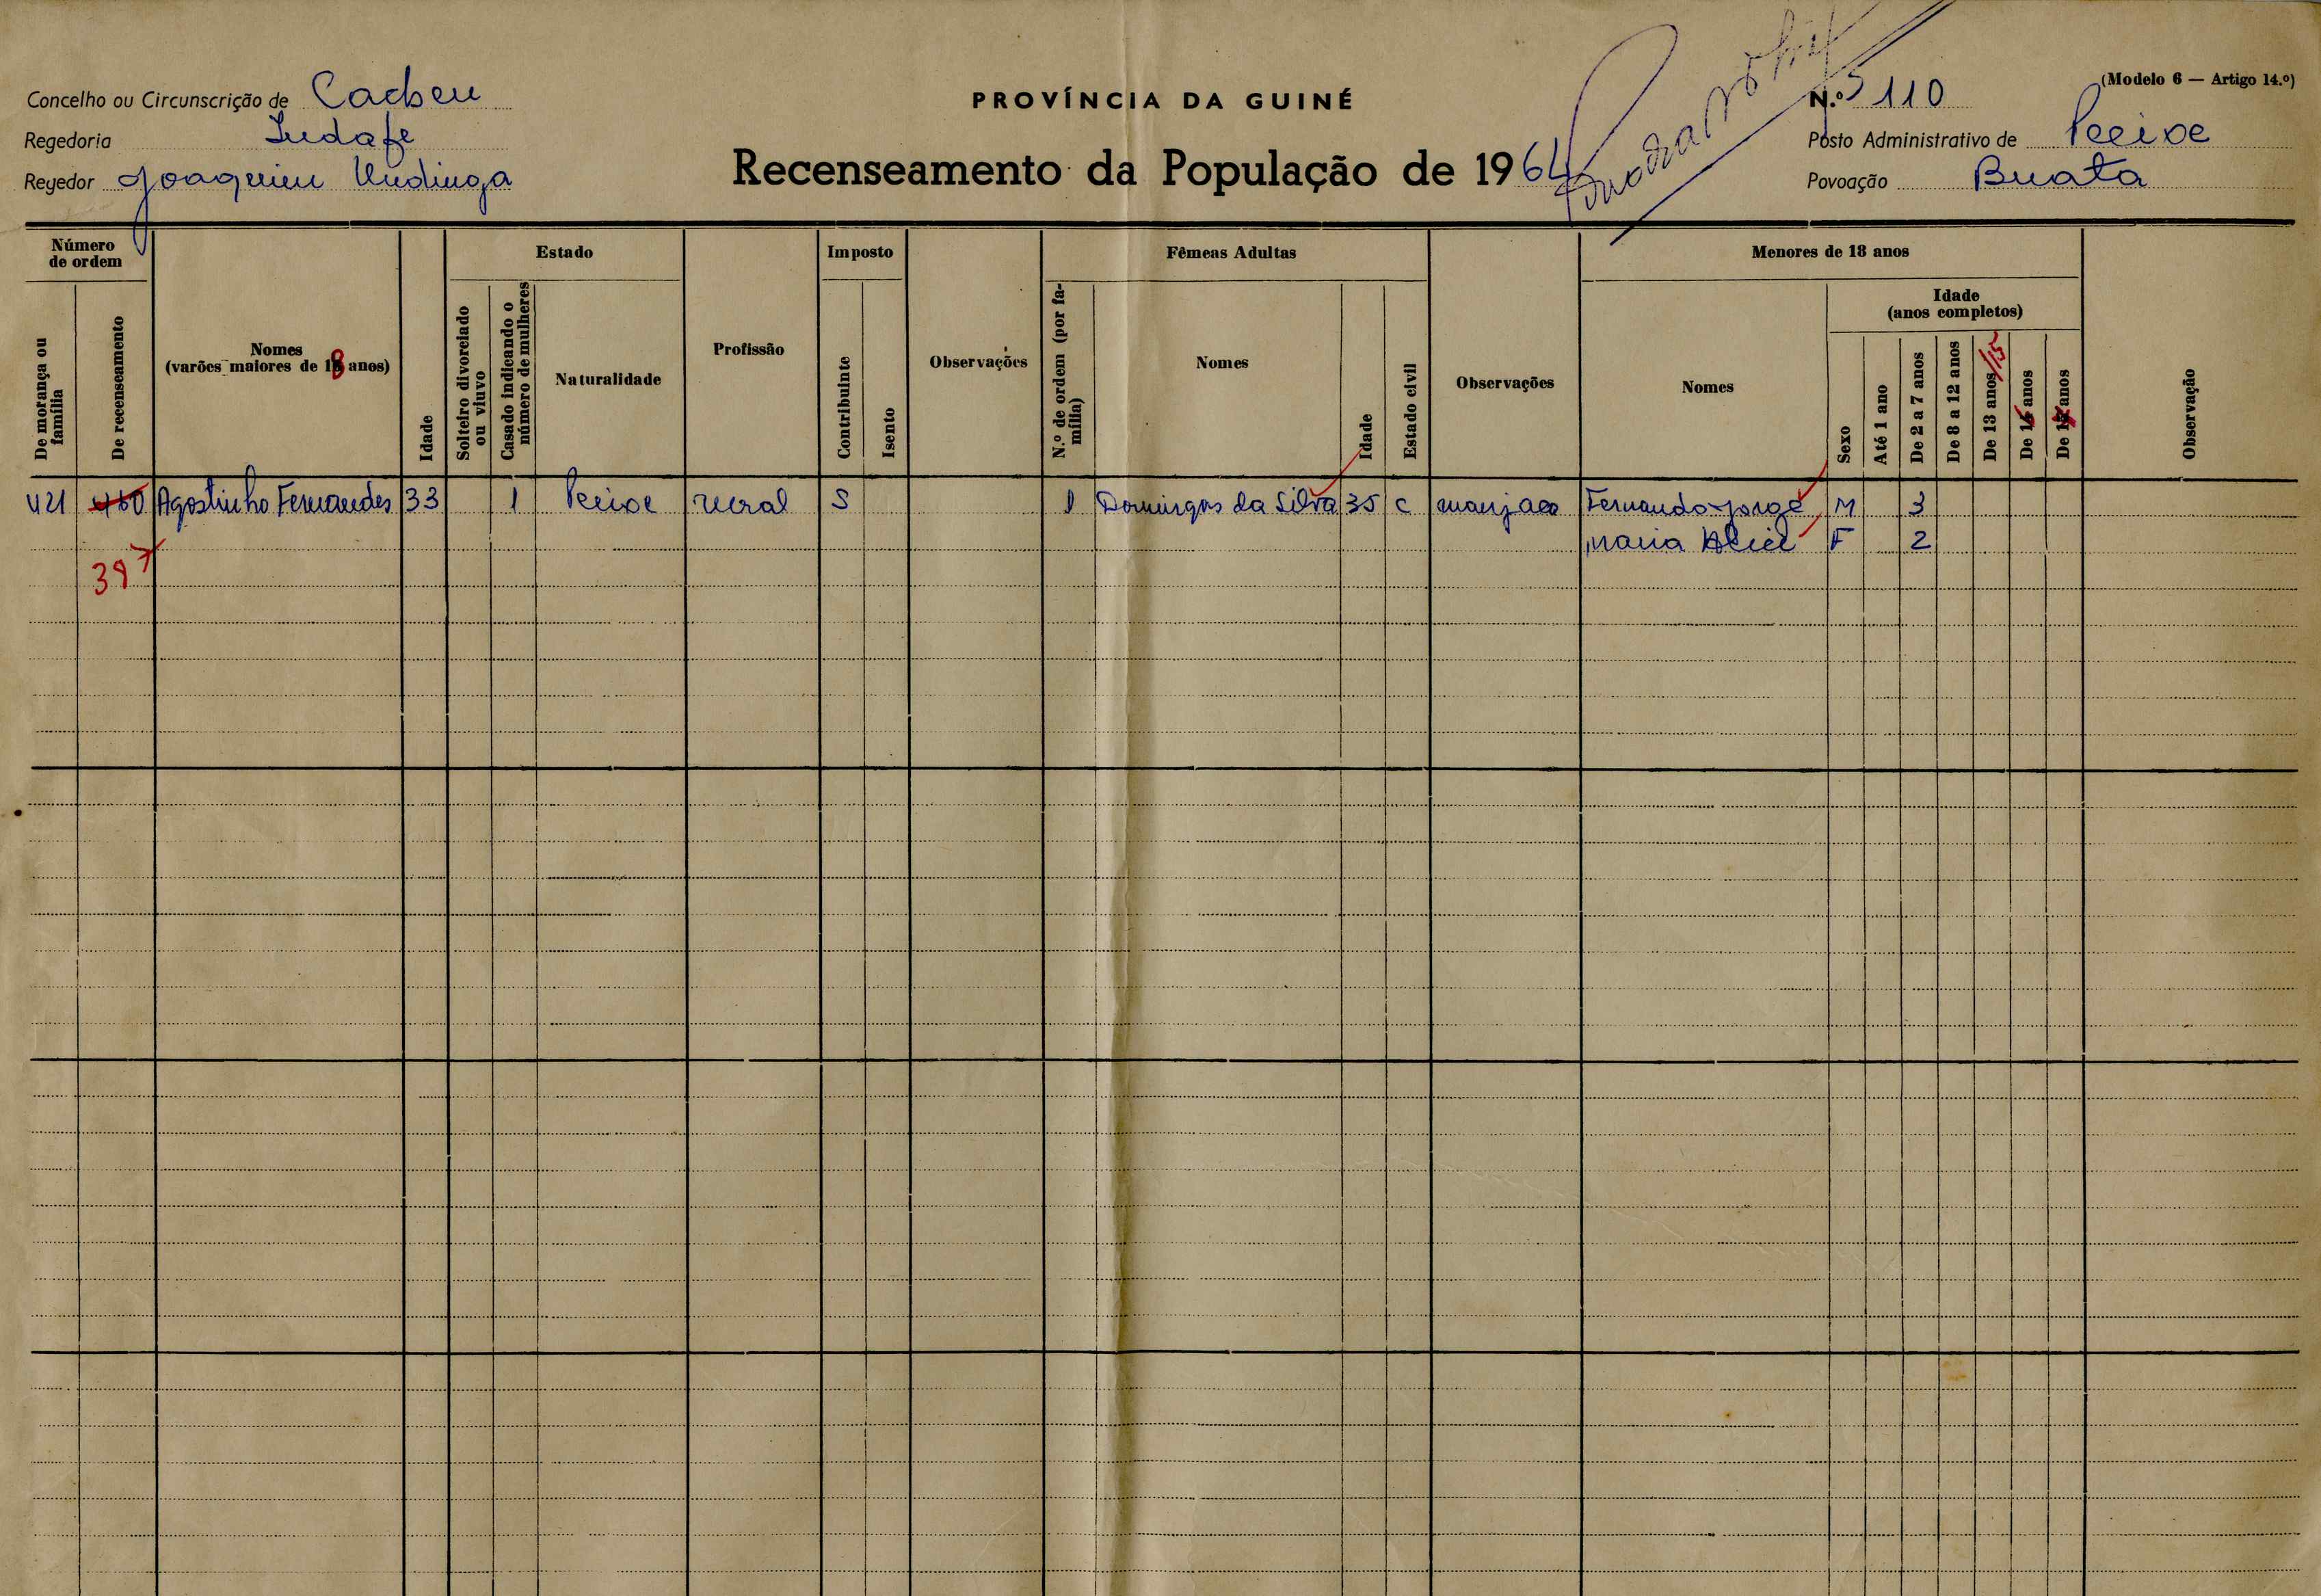 (Modelo 6 — Artigo 14.º)
Concelho ou Circunscrição de Cacheu
PROVÍNCIA DA GUINÉ
N.º 110
Regedoria
Posto Administrativo de Pecixe
Regedor Joaquim Undinga
Recenseamento da População de 1964
Povoação Buata
Número de ordem
Estado
Imposto
Fêmeas Adultas
Menores de 18 anos
Idade (anos completos)
De morança ou família
De recenseamento
Nomes (varões maiores de 18 anos)
Idade
Solteiro divorciado ou viuvo
Casado indicando o número de mulheres
Naturalidade
Profissão
Contribuinte
Isento
Observações
N.º de ordem (por família)
Nomes
Idade
Estado civil
Observações
Nomes
Sexo
Até 1 ano
De 2 a 7 anos
De 8 a 12 anos
De 13 anos /15
De anos
De anos
Observação
421 460 Agostinho Fernandes 33 1 Pecixe rural S 1 Domingas da Silva 35 C manjaco Fernando Jorge M 3
Maria F 2
397